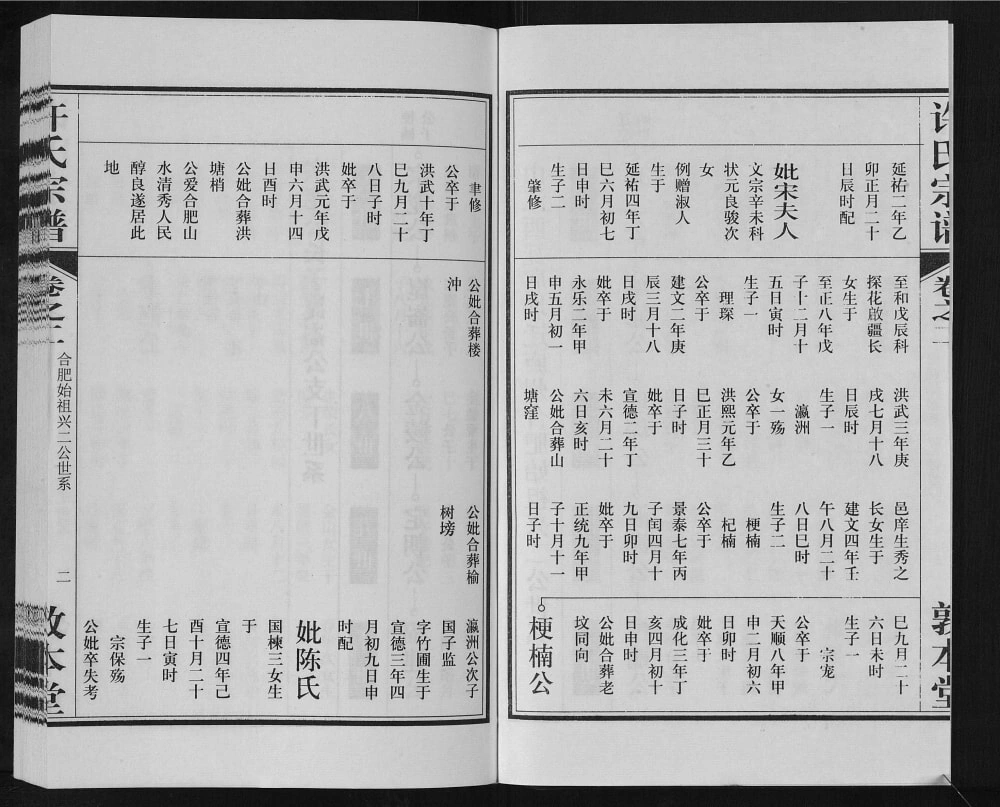 许氏宗谱
卷之二
敦本堂
延祐二年乙
卯正月二十
日辰时配
妣宋夫人
文宗辛未科
状元良骏次
女
例赠淑人
生于
延祐四年丁
巳六月初七
日申时
生子二
肇修
至和戊辰科
探花啟疆长
女生于
至正八年戊
子十二月十
五日寅时
生子一
理琛
公卒于
建文二年庚
辰三月十八
日戌时
妣卒于
永乐二年甲
申五月初一
日戌时
洪武三年庚
戌七月十八
日辰时
生子一
瀛洲
女一殇
公卒于
洪熙元年乙
巳正月三十
日子时
妣卒于
宣德二年丁
未六月二十
六日亥时
公妣合葬山
塘窪
邑庠生秀之
长女生于
建文四年壬
午八月二十
八日巳时
生子二
梗楠
杞楠
公卒于
景泰七年丙
子闰四月十
九日卯时
妣卒于
正统九年甲
子十月十一
日子时
巳九月二十
六日未时
生子一
宗宠
公卒于
天顺八年甲
申二月初六
日卯时
妣卒于
成化三年丁
亥四月十一
日申时
公妣合葬老
坟同向
梗楠公
聿修
公卒于
洪武十年丁
巳九月二十
八日子时
妣卒于
洪武元年戊
申六月十四
日酉时
公妣合葬洪
塘梢
公爱合肥山
水清秀人民
醇良遂居此
地
公妣合葬楼
冲
公妣合葬榆
树塝
瀛洲公次子
国子监
字竹圃生于
宣德三年四
月初九日申
时配
妣陈氏
国楝三女生
于
宣德四年己
酉十月二十
七日寅时
生子一
宗保殇
公妣卒失考
许氏宗谱
卷之二
合肥始祖兴二公世系
二
敦本堂